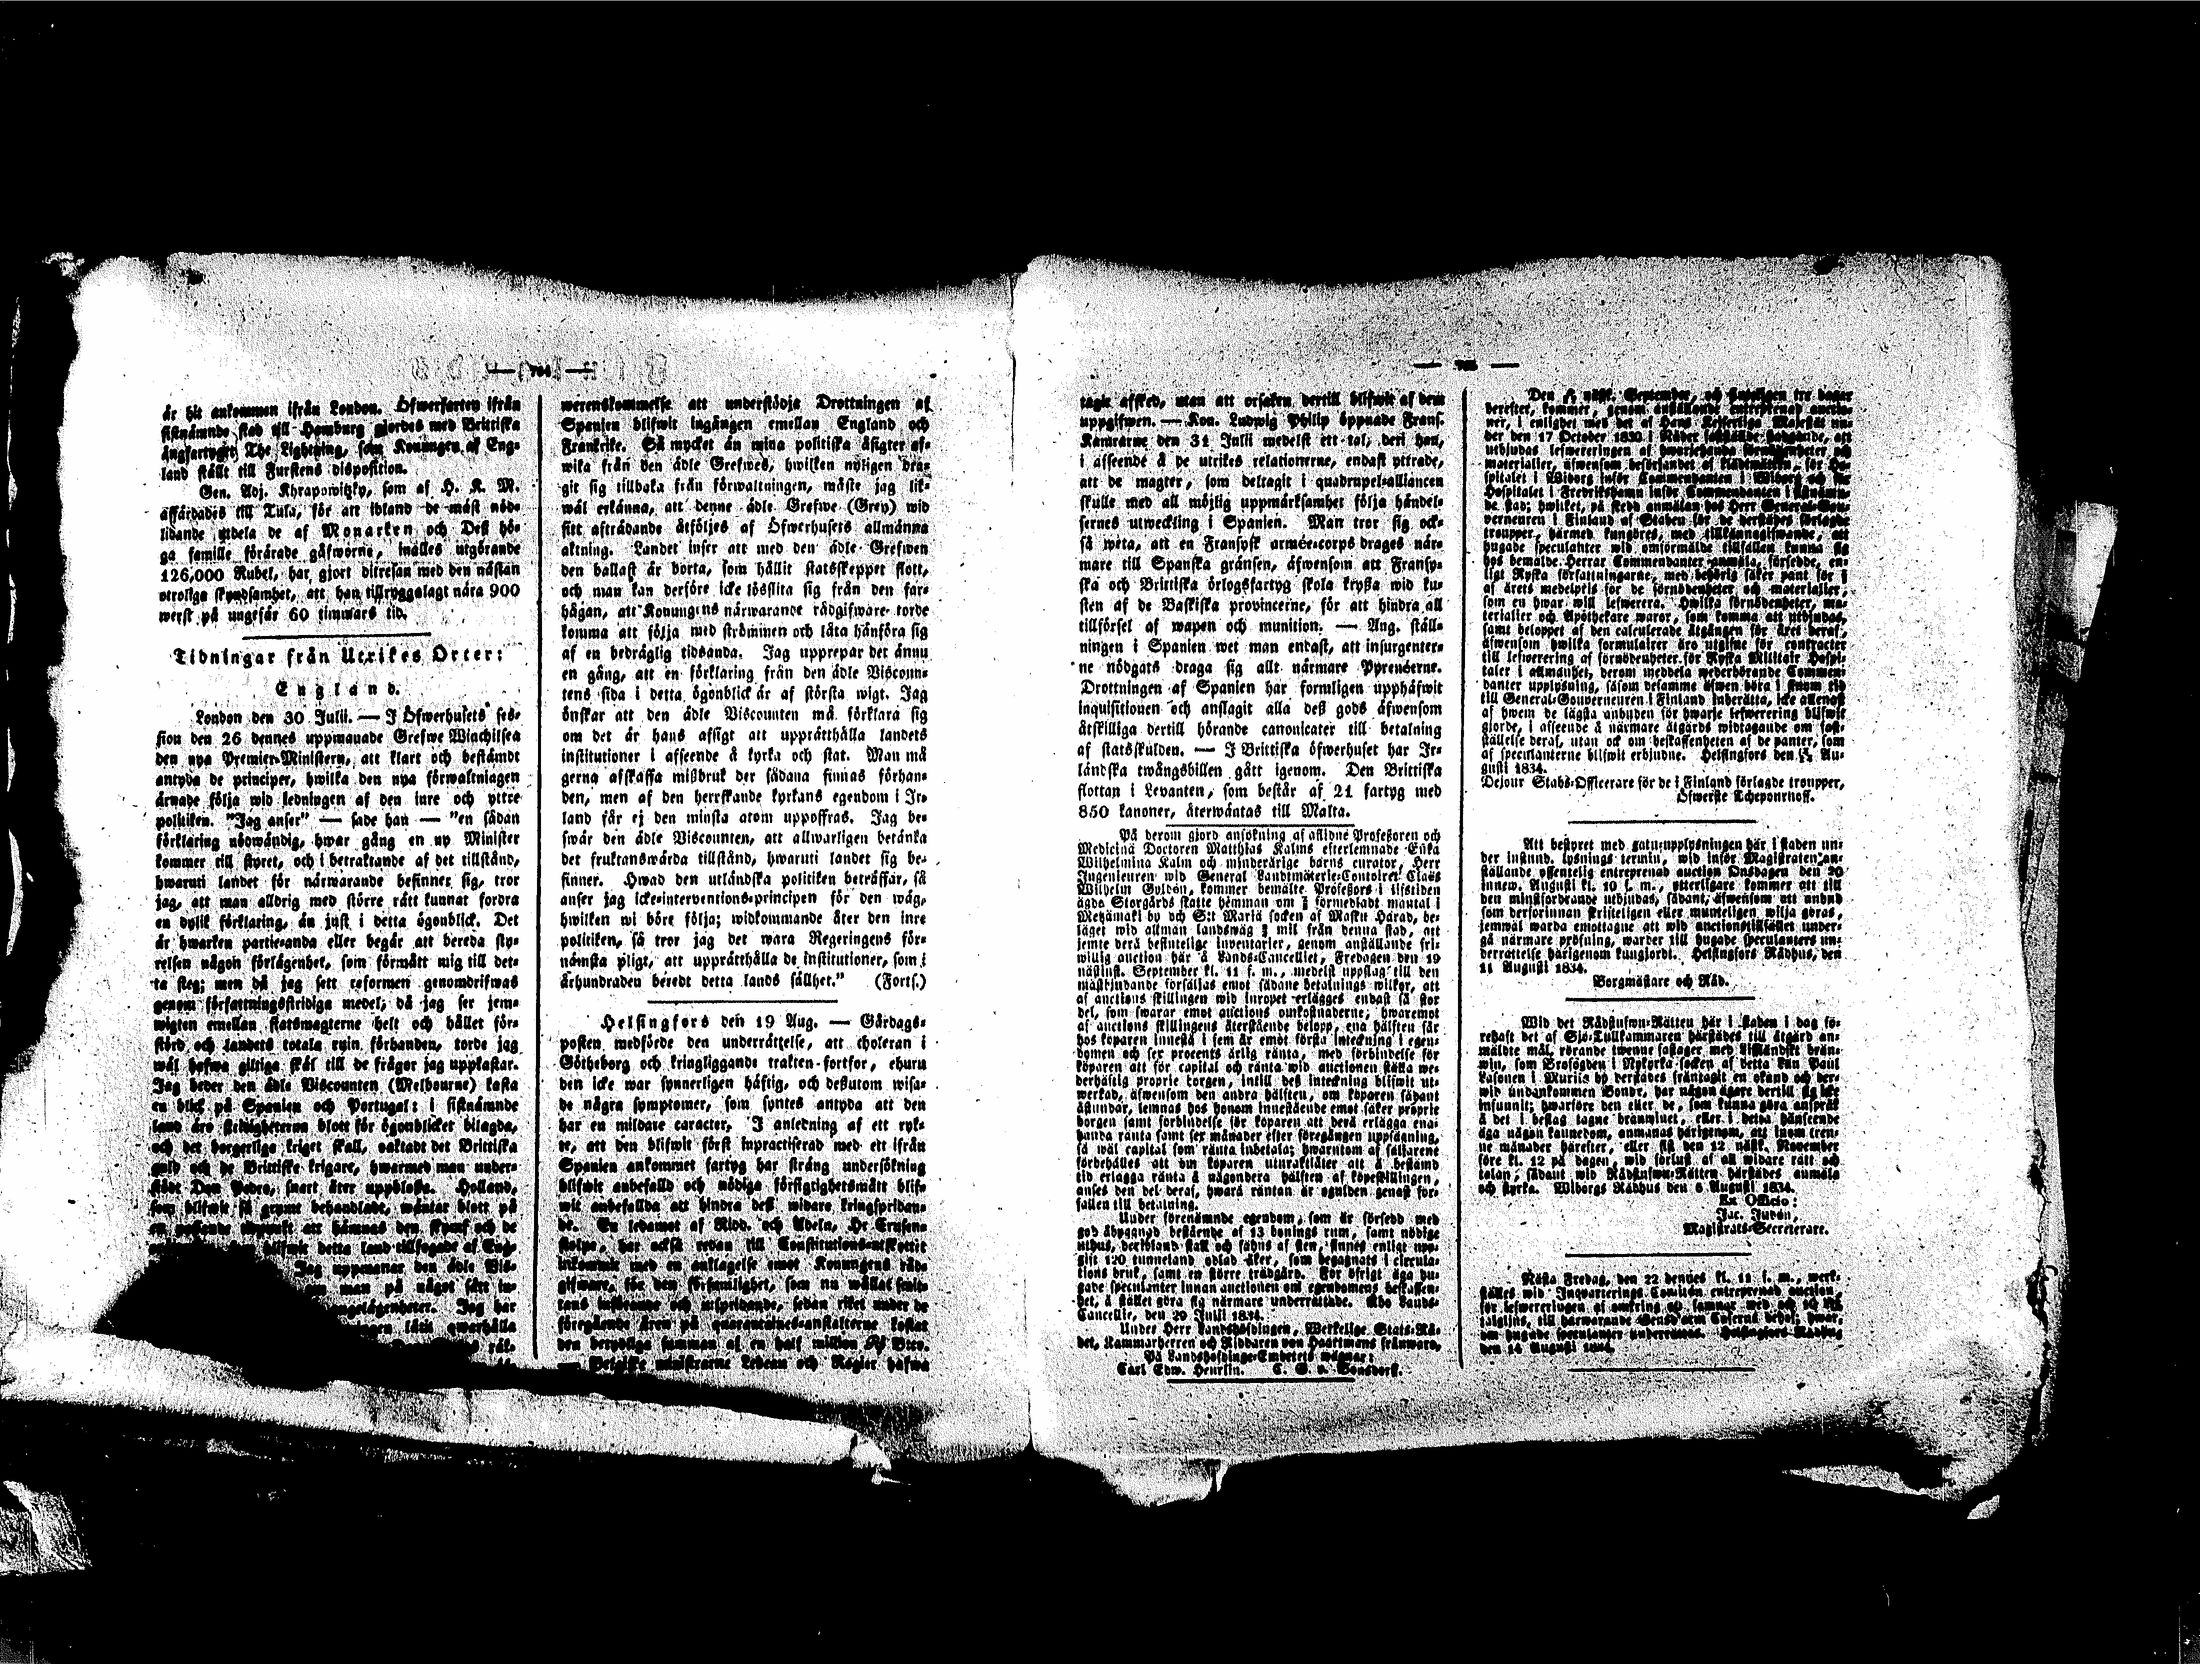 är hit ankommen ifrån London. Öfwerfarten ifrån
sistnämnde stad till Hamburg gjordes med Brittiska
ångfartyget The Lightning, som Konungen af Eng-
land ställt till Furstens disposition.
Gen. Adj. Khrapowitzky, som af H. K. M.
affärdades till Tula, för att ibland de mäst nöd-
lidande utdela de af Monarken och Deß hö-
ga famille förärade gåfworne, inalles utgörande
126,000 Rubel, har gjort ditresan med den nästan
otroliga skyndsamhet, att han tillryggalagt nära 900
werst på ungefär 60 timmars tid.
Tidningar från Utrikes Orter:
England.
London den 30 Julii. — I Öfwerhusets ses-
sion den 26 dennes uppmanade Grefwe Winchilsea
den nya Premier-Ministern, att klart och bestämdt
antyda de principer, hwilka den nya förwaltningen
ärnade följa wid ledningen af den inre och yttre
politiken. "Jag anser" — sade han — "en sådan
förklaring nödwändig, hwar gång en ny Minister
kommer till styret, och i betraktande af det tillstånd,
hwaruti landet för närwarande befinner sig, tror
jag, att man alldrig med större rätt kunnat fordra
en dylik förklaring, än just i detta ögonblick. Det
är hwarken partie-anda eller begär att bereda sty-
relsen någon förlägenhet, som förmått mig till det-
ta steg; men då jag sett reformen genomdrifwas
genom författningsstridiga medel; då jag ser jem-
wigten emellan statsmagterne helt och hållet för-
störd och landets totala ruin förhanden, torde jag
wäl hafwa giltiga skäl till de frågor jag uppkastar.
Jag beder den ädle Viscounten (Melbourne) kasta
en blick på Spanien och Portugal: i sistnämnde
land äro stridigheterna blott för ögonblicket bilagda,
och det borgerliga kriget skall, oaktadt det Brittiska
guld och de Brittiske krigare, hwarmed man under-
stödt Don Pedro, snart åter uppblossa. Holland,
som blifwit så grymt behandladt, wäntar blott på
att hämnas den och de
blifwit detta land tillfogade af Eng-
Jag uppmanar den ädle Vis-
man på något sätt in-
angelägenheter. Jag har
låta öfwerhålla
— 704 —
werenskommelse att understödja Drottningen af
Spanien blifwit ingången emellan England och
Frankrike. Så mycket än mina politiska åsigter af-
wika från den ädle Grefwes, hwilken nyligen dra-
git sig tillbaka från förwaltningen, måste jag lik-
wäl erkänna, att denne ädle Grefwe (Grey) wid
sitt afträdande åtföljes af Öfwerhusets allmänna
aktning. Landet inser att med den ädle Grefwen
den ballast är borta, som hållit statsskeppet flott,
och man kan derföre icke lösslita sig från den far-
hågan, att Konungens närwarande rådgifware torde
komma att följa med strömmen och låta hänföra sig
af en bedräglig tidsanda. Jag upprepar det ännu
en gång, att en förklaring från den ädle Viscoun-
tens sida i detta ögonblick är af största wigt. Jag
önskar att den ädle Viscounten må förklara sig
om det är hans afsigt att upprätthålla landets
institutioner i afseende å kyrka och stat. Man må
gerna afskaffa mißbruk der sådana finnas förhan-
den, men af den herrskande kyrkans egendom i Ir-
land får ej den minsta atom uppoffras. Jag be-
swär den ädle Viscounten, att allwarligen betänka
det fruktanswärda tillstånd, hwaruti landet sig be-
finner. Hwad den utländska politiken beträffar, så
anser jag icke-interventions-principen för den wäg,
hwilken wi böre följa; widkommande åter den inre
politiken, så tror jag det wara Regeringens för-
nämsta pligt, att upprätthålla de institutioner, som i
århundraden beredt detta lands sällhet." (Forts.)
Helsingfors den 19 Aug. — Gårdags-
posten medförde den underrättelse, att choleran i
Götheborg och kringliggande trakten fortfor, ehuru
den icke war synnerligen häftig, och deßutom wisa-
de några symptomer, som syntes antyda att den
har en mildare caracter. I anledning af ett ryk-
te, att den blifwit först inpractiserad med ett ifrån
Spanien ankommet fartyg har sträng undersökning
blifwit anbefalld och nödiga försigtighetsmått blif-
wit anbefallda att hindra deß widare kringspridan-
de. En ledamot af Ridd. och Adeln, Hr Crusen-
stolpe, har också redan till Constitutionsutskottet
inkommit med en anklagelse emot Konungens råd-
gifware, för den försumlighet, som nu wållat smit-
tans införande och utspridande, sedan riket under de
föregående åren på quarantaines-anstalterne kostat
den betydliga summan af en half million Rdr Bco.
— Belgiske ministrarne Lebeau och Rogier hafwa
tagit afsked, utan att orsaken dertill blifwit af dem
uppgifwen. — Kon. Ludwig Philip öppnade Frans.
Kamrarne den 31 Julii medelst ett tal, deri han,
i afseende å de utrikes relationerne, endast yttrade,
att de magter, som deltagit i quadrupel-alliancen
skulle med all möjlig uppmärksamhet följa händel-
sernes utweckling i Spanien. Man tror sig ock-
så weta, att en Fransysk armée-corps drages när-
mare till Spanska gränsen, äfwensom att Fransy-
ska och Brittiska örlogsfartyg skola kryßa wid ku-
sten af de Baskiska provincerne, för att hindra all
tillförsel af wapen och munition. — Ang. ställ-
ningen i Spanien wet man endast, att insurgenter-
ne nödgats draga sig allt närmare Pyreneerne.
Drottningen af Spanien har formligen upphäfwit
inquisitionen och anslagit alla deß gods äfwensom
åtskilliga dertill hörande canonicater till betalning
af statsskulden. — I Brittiska öfwerhuset har Ir-
ländska twångsbillen gått igenom. Den Brittiska
flottan i Levanten, som består af 21 fartyg med
850 kanoner, återwäntas till Malta.
På derom gjord ansökning af aflidne Profeßoren och
Medicinä Doctoren Matthias Kalms efterlemnade Enka
Wilhelmina Kalm och minderårige barns curator, Herr
Ingenieuren wid General Landtmäterie-Contoiret Claës
Wilhelm Gyldén, kommer bemälte Profeßors i lifstiden
ägda Storgårds skatte hemman om förmedladt mantal i
Metzämäki by och S:t Mariä socken af Masku Härad, be-
läget wid allmän landswäg mil från denna stad, att
jemte derå befintelige inventarier, genom anställande fri-
willig auction här å Lands-Cancelliet, Fredagen den 19
nästinst. September kl. 11 f. m., medelst uppslag till den
mästbjudande försäljas emot sådane betalnings wilkor, att
af auctions skillingen wid inropet erlägges endast så stor
del, som swarar emot auctions omkostnaderne; hwaremot
af auctions skillingens återstående belopp, ena hälften får
hos köparen innestå i fem år emot första inteckning i egen-
domen och sex procents årlig ränta, med förbindelse för
köparen att för capital och ränta wid auctionen ställa we-
derhäftig proprie borgen, intill deß inteckning blifwit ut-
werkad, äfwensom den andra hälften, om köparen sådant
åstundar, lemnas hos honom innestående emot säker proprie
borgen samt förbindelse för köparen att derå erlägga ena-
handa ränta samt sex månader efter föregången uppsägning,
så wäl capital som ränta inbetala; hwarutom af säljarene
förbehålles att om köparen uturaktlåter att å bestämd
tid erlägga ränta å någondera hälften af köpeskillingen,
anses den del deraf, hwarå räntan är ogulden genast för-
fallen till betalning.
Under förenämnde egendom, som är försedd med
god åbyggnad bestående af 13 bonings rum, samt nödige
uthus, deribland stall och fähus af sten, finnes enligt upp-
gift 120 tunneland odlad åker, som begagnats i circula-
tions bruk, samt en större trädgård. För öfrigt äga hu-
gade speculanter innan auctionen om egendomens beskaffen-
het, å stället göra sig närmare underrättade. Åbo Lands-
Cancellie, den 29 Julii 1834.
Under Herr Landshöfdingen, Werkelige Stats-Rå-
det, Kammarherren och Riddaren von Haartmans frånwaro,
På Landshöfdinge-Embetets wägnar:
Carl Edw. Heurlin. C. G. v. Bonsdorff.
Den näst. September, och tre dagar
derefter, kommer, genom anställande entreprenad auctio-
ner, i enlighet med det af Hans Kejserliga Majestät un-
der den 17 October 1830 i Nåder att
utbjudas lefwereringen af hwarjehanda förnödenheter och
materialier, äfwensom beförandet af för Ho-
spitalet i Wiborg inför Commendanten i Wiborg och för
Hospitalet i Fredrikshamn inför Commendanten i sistnämn-
de stad; hwilket, på skedd anmälan hos Herr General-Gou-
verneuren i Finland af Staben för de derstädes förlagde
troupper, härmed kungöres, med tillkännagifwande, att
hugade speculanter wid omförmälde tillfällen kunna sig
hos bemälde Herrar Commendanter anmäla, försedde, en-
ligt Ryska författningarne, med behörig säker pant för
af årets medelpris för de förnödenheter och materialier,
som en hwar will lefwerera. Hwilka förnödenheter, ma-
terialier och Apothekare waror, som komma att utbjudas,
samt beloppet af den calculerade åtgången för året deraf,
äfwensom hwilka formulairer äro utgifne för contracter
till lefwerering af förnödenheter för Ryska Militair Hospi-
taler i allmänhet, derom meddela wederbörande Commen-
danter upplysning, såsom desamme äfwen böra i sinom tid
till General-Gouverneuren i Finland inberätta, icke allenast
af hwem de lägsta anbuden för hwarje lefwerering blifwit
gjorde, i afseende å närmare åtgärds widtagande om fast-
ställelse deraf, utan ock om beskaffenheten af de panter, som
af speculanterne blifwit erbjudne. Helsingfors den Au-
gusti 1834.
Dejour Stabs-Officerare för de i Finland förlagde troupper,
Öfwerste Tcheponrnoff.
Att bestyret med gatu-upplysningen här i staden un-
der instund. lysnings termin, wid inför Magistraten an-
ställande offentelig entreprenad auction Onsdagen den 20
innew. Augusti kl. 10 f. m., ytterligare kommer att till
den minstfordrande utbjudas, sådant, äfwensom att anbud
som derförinnan skrifteligen eller munteligen wilja göras,
jemwäl warda emottagne att wid auctionstillfället under-
gå närmare pröfning, warder till hugade speculanters un-
derrättelse härigenom kungjordt. Helsingfors Rådhus, den
11 Augusti 1834.
Borgmästare och Råd.
Wid det Rådstufwu-Rätten här i staden i dag fö-
rehaft det af Sjö-Tullkammaren härstädes till åtgärd an-
mäldte mål, rörande twenne fastager med utländskt brän-
win, som Brofogden i Nykyrka socken af detta län Paul
Lasonen i Muriis by derstädes fråntagit en okänd och der-
wid undankommen Bonde, har någon ägare dertill sig icke
infunnit; hwarföre den eller de, som kunna göra anspråk
å det i beslag tagne bränwinet, eller i detta hänseende
äga någon kännedom, anmanas härigenom, att inom tren-
ne månader härefter, eller sist den 12 näst. November
före kl. 12 på dagen, wid förlust af all widare rätt och
talan, sådant wid Rådstufwu-Rätten härstädes anmäla
och styrka. Wiborgs Rådhus den 6 Augusti 1834.
Ex Officio:
Jac. Judén,
Magistrats-Secreterare.
Nästa Fredag, den 22 dennes kl. 11 f. m., werk-
ställes wid Inqvarterings Comitén entreprenad auction,
för lefwereringen af omkring 90 famnar wed och 10
talgljus, till härwarande Gensd'arm Caserns behof; hwar-
om hugade speculanter underrättas. Helsingfors Rådhus
den 14 Augusti 1834.